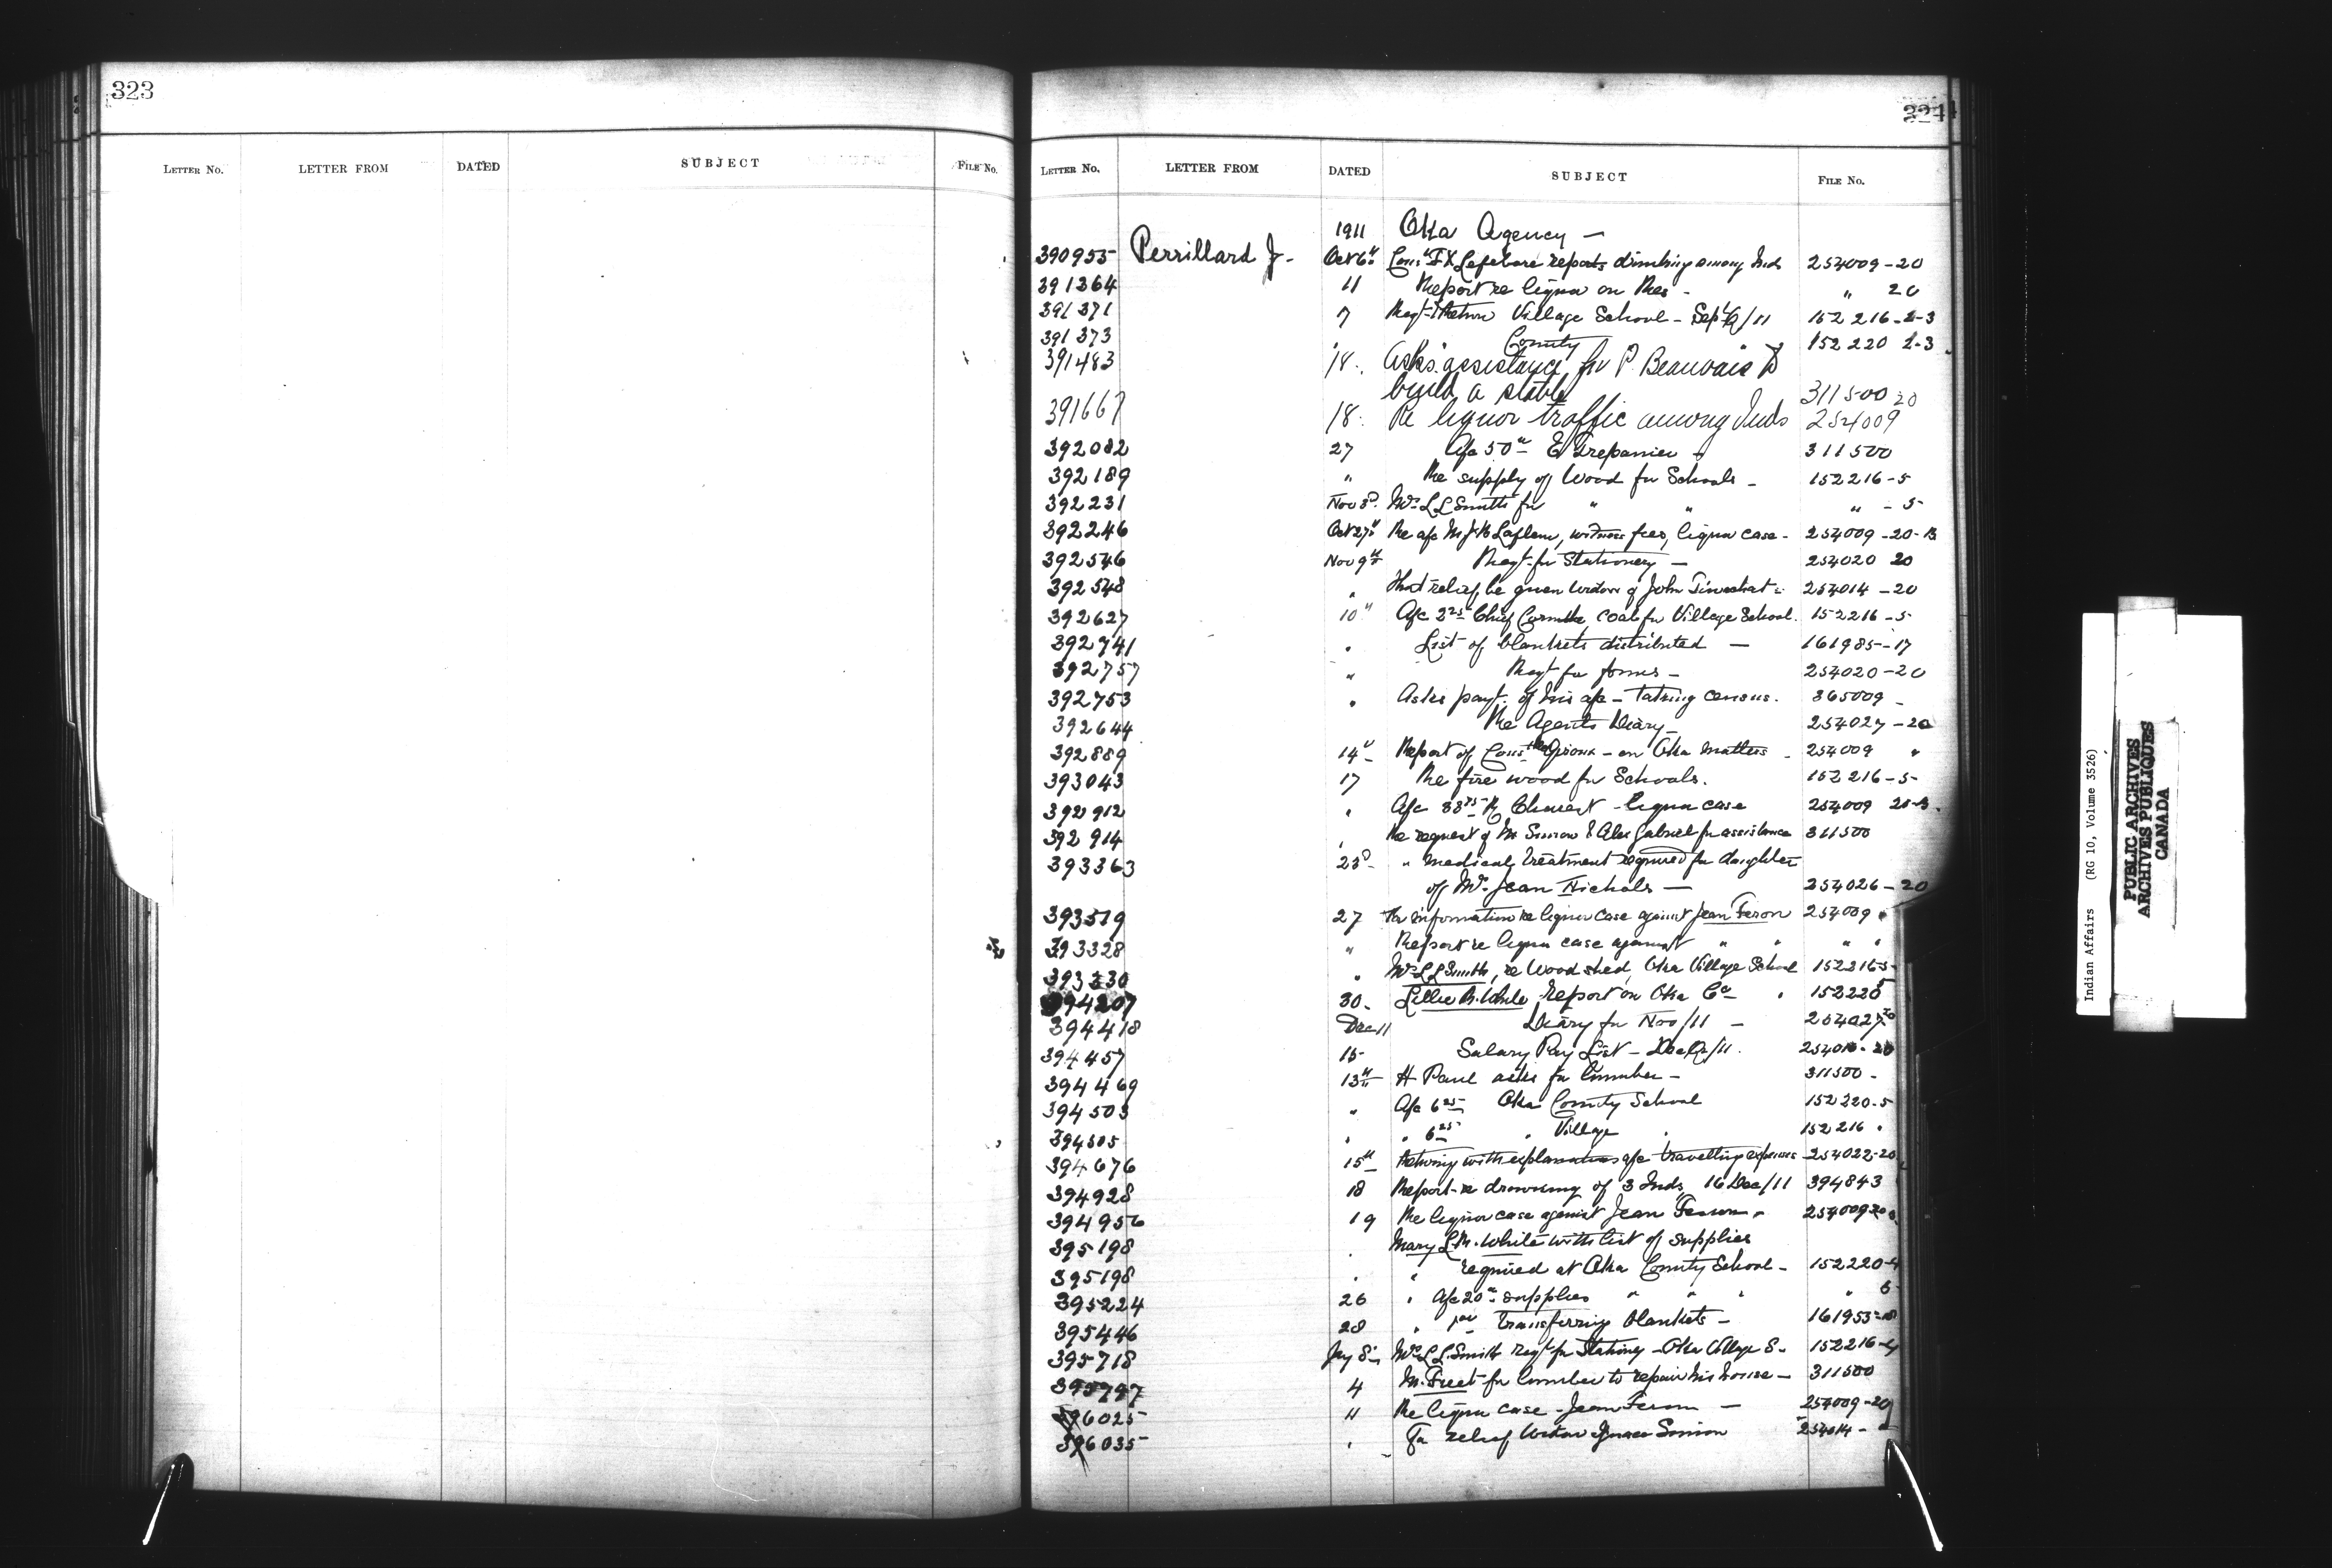 323
LETTER No. LETTER FROM DATED SUBJECT FILE No.
324
LETTER No. LETTER FROM DATED SUBJECT FILE No.
1911 Oka Agency —
390955 Perrillard J. Oct 6th Const F X Lefebvre reports drinking among Inds 254009-20
391364 11 Report re liquor on Res - " 20
391371 7 Reqt Return Village School - Sept Q/11 152216-2-3
391373 County " 152220 2-3
391483 18. Asks assistance for P. Beauvais to
build a stable 311500 20
391667 18. Re liquor traffic among Inds 254009
392082 27 A/c 50 E Trepannier - 311500
392189 " Re supply of Wood for Schools - 152216-5
392231 Nov 3d Mrs L L Smith for " " " - 5
392246 Oct 27th Re a/c M J B Laflem, witness fees, liquor case - 254009-20-B
392546 Nov 9th Reqt for Stationery — 254020 20
392548 " That relief be given widow of John 254014-20
392627 10" A/c 2 25 Chief coal for Village School. 152216-5
392741 " List of blankets distributed — 161985-17
392757 " Reqt for forms - 254020-20
392753 " Asks payt. of his a/c - taking census. 365009
392644 Re Agents Diary 254027-20
392889 14" Report of Const - on Oka matters 254009 "
393043 17 Re fire wood for Schools. 152216-5
392912 " A/c 38 75 - liquor case 254009 20-B
392914 " Re request of M Simon & Alex Gabriel for assistance 311500
393363 23d " Medical treatment required for daughter
of Mrs. Jean Nichols — 254026-20
393519 27 For information re liquor case against Jean Feron 254009 "
393328 " Report re liquor case against " " " "
393330 " Mrs L L Smith, re Wood shed, Oka Village School 152216-5
394207 30. Lillie B. White Report on Oka Co " 152220 5
394418 Dec 11 Diary for Nov/11 — 254027 20
394457 15 Salary Pay List - Dec Q/11. 254016-20
394469 13th H Paul asks for lumber - 311500 -
394503 " A/c 6 25 Oka County School 152220-5
394505 " " 6 25 " Village " 152216 "
394676 15th Returning with explanations a/c travelling expenses 254022-20
394928 18 Report re drowning of 3 Inds, 16 Dec/11 394843
394956 19 Re liquor case against Jean Feron " 254009 20
395198 " Mary L. M. White with list of supplies
395198 " " required at Oka County School - 152220-4
395224 26 " A/c 20 supplies " " " " 5
395446 28 " for transferring blankets - 161953-18
395718 Jny 8" Mrs L L Smith Reqt for Stationy - Oka Village S. 152216-4
395797 4 M. Freet for lumber to repair his house - 311500
396025 11 Re liquor case - Jean Feron — 254009-20
396035 " For relief Widow Ignace Simon 254014- "
Indian Affairs (RG 10, Volume 3526)
PUBLIC ARCHIVES
ARCHIVES PUBLIQUES
CANADA